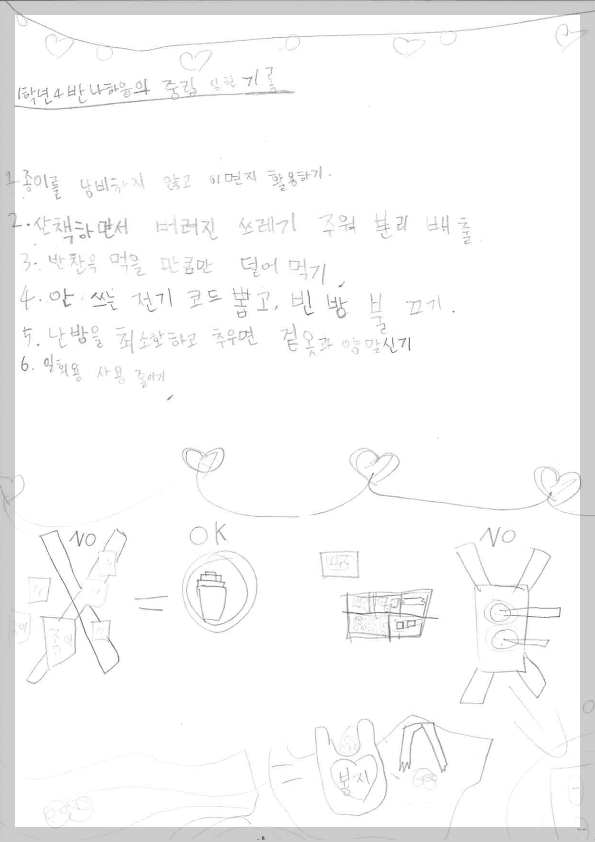 1학년 4반 나하율의 중립 실천 기록
1. 종이를 낭비하지 않고 이면지 활용하기.
2. 산책하면서 버려진 쓰레기 주워 분리 배출.
3. 반찬은 먹을 만큼만 덜어 먹기.
4. 안 쓰는 전기 코드 뽑고, 빈 방 불 끄기.
5. 난방을 최소화하고 추우면 겉옷과 양말신기
6. 일회용 사용 줄이기
NO
OK
NO
종이
봉지